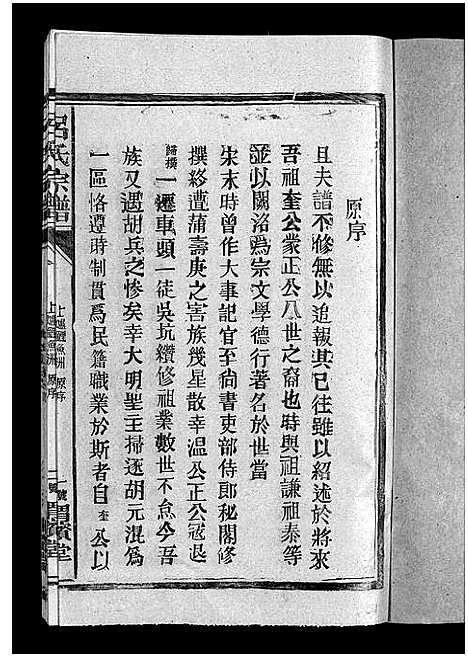 原序
且夫譜不修無以追報其已往雖以紹述於將來
吾祖奎公蒙正公八世之裔也時與祖謙祖泰等
並以關洛爲宗文學德行著名於世當
宋末時曾作大事記官至尚書吏部侍郎秘閣修
撰終遭蒲壽庚之害族幾星散幸温公正公寇退
歸撰一遷車頭一徒吳坑纘修祖業數世不怠今吾
族又遇胡兵之慘矣幸大明聖主掃逐胡元混爲
一區恪遵時制貫爲民籍職業於斯者自奎公以
呂氏宗譜
原序
一號
渭濱堂